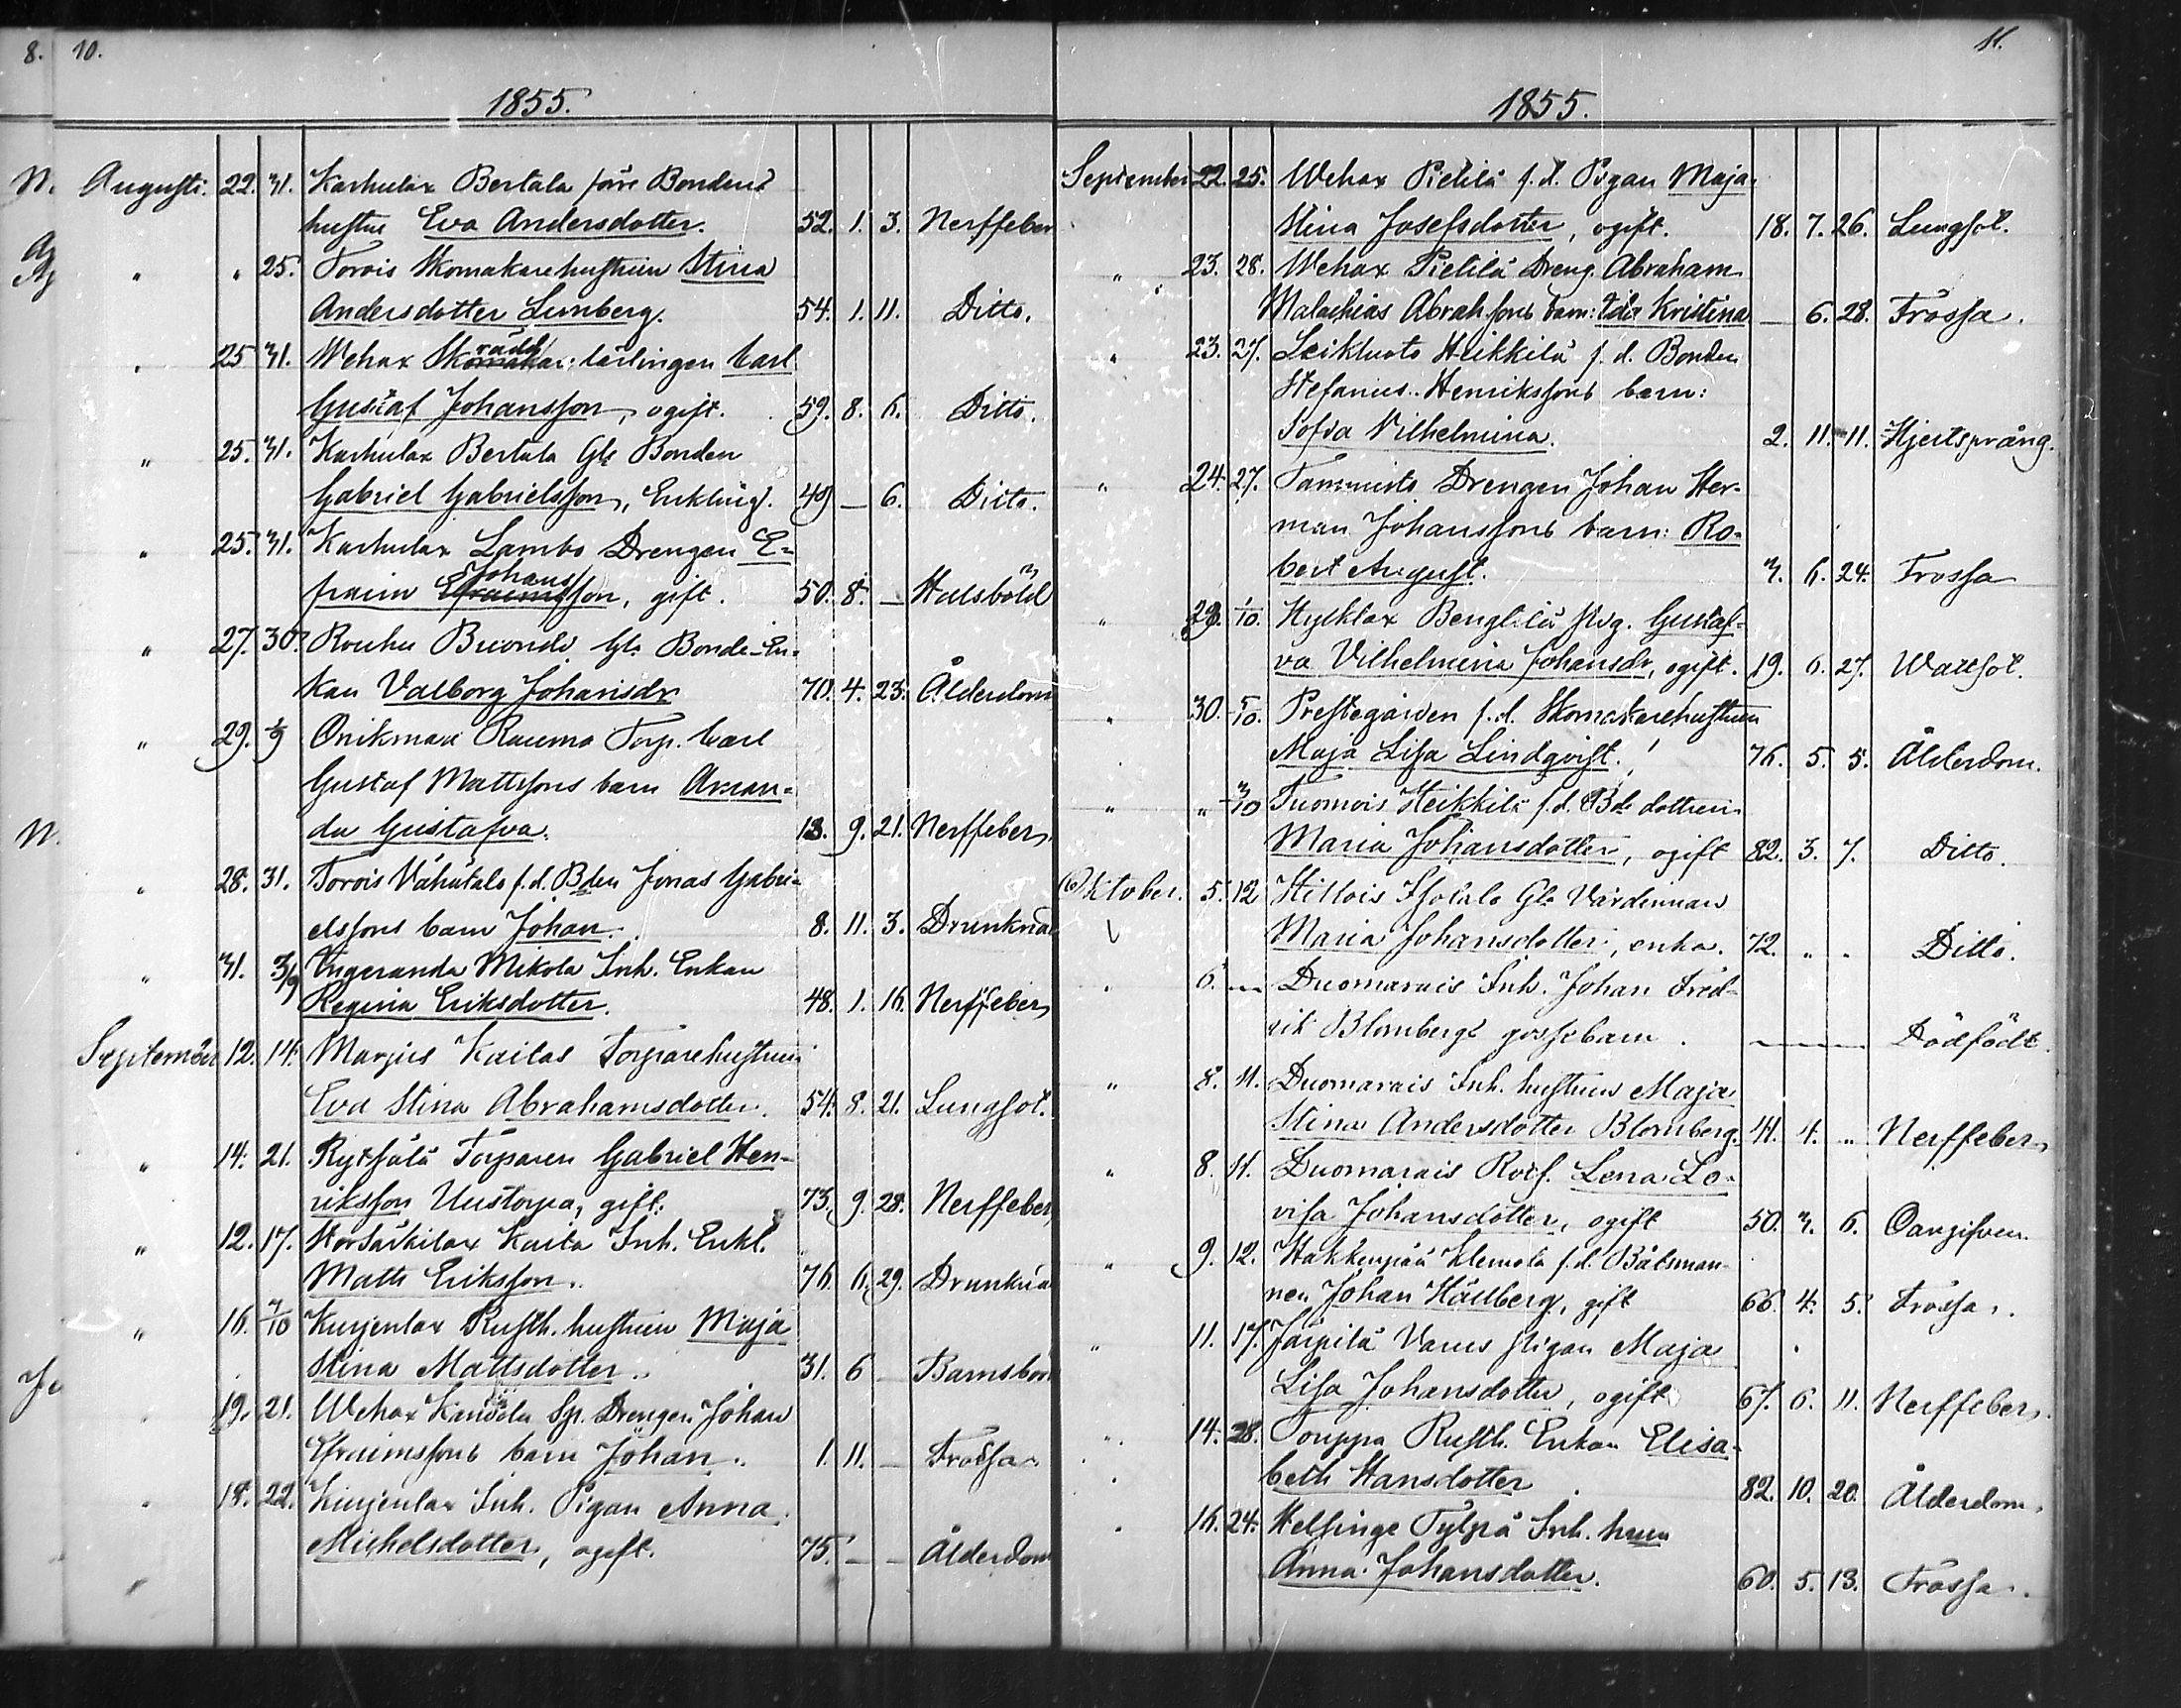 8. 10.
1855.
Augusti. 22. 31. Karhulax Bertala förre Bondens
hustru Eva Andersdotter. 52. 1. 3. Nerffeber
" " 25. Torois Skomakarehustrun Stina
Andersdotter Lumberg. 54. 1. 11. Ditto.
" 25 31. Wehax Skomakar lärlingen Carl
Gustaf Johansson, ogift. 59. 8. 6. Ditto.
" 25. 31. Karhulax Bertala Gle Bonden
Gabriel Gabrielsson, Enkling. 49 — 6. Ditto.
" 25. 31. Karhulax Lambo Drengen E-
Johans
fraim Efraimsson, gift. 50. 8. — Halsböld
" 27. 30. Rouhu Buonde Gle Bonde-En-
kan Valborg Johansdr 70. 4. 23. Ålderdom
" 29. 2/9 Onikmaa Rauma Torp. Carl
Gustaf Mattssons barn Aman-
da Gustafva. 13. 9. 21. Nerffeber
" 28. 31. Torois Vähätalo f.d. Bden Jonas Gabri-
elssons barn Johan. 8. 11. 3. Drunknad
" 31. 3/9 Ungeranda Mikola Inh. Enkan
Regina Eriksdotter. 48. 1. 16. Nerffeber
September 12. 14. Marjus Kailas Torparehustrun
Eva Stina Abrahamsdotter. 54. 8. 21. Lungsot.
" 14. 21. Rytsälä Torparen Gabriel Hen-
riksson Uustorpa, gift. 73. 9. 28. Nerffeber
" 12. 17. Korsärkilax Kaila Inh. Enkl.
Matts Eriksson. 76. 6. 29. Drunknad
" 16. 7/10 Kurjenlax Rusth. hustrun Maja
Stina Mattsdotter. 31. 6 — Barnsbörd
" 19. 21. Wehax Sp. Drengen Johan
Efraimssons barn Johan. 1. 11. — Trossa
" 18. 22. Kurjenlax Inh. Pigan Anna
Michelsdotter, ogift. 75. — — Ålderdom
11.
1855.
September 22. 25. Wehax Pietilä f.d. Pigan Maja
Stina Josefsdotter, ogift. 18. 7. 26. Lungsot.
" 23. 28. Wehax Pietilä Dreng. Abraham
Malachias Abrahssons barn: Ida Kristina — 6. 28. Trossa.
" 23. 27. Leikluoto Heikkilä f.d. Bonden
Stefanus Henrikssons barn:
Sofia Vilhelmina. 2. 11. 11. Hjertsprång.
" 24. 27. Tammisto Drengen Johan Her-
man Johanssons barn: Ro-
bert August. 3. 6. 24. Trossa
" 29. 1/10. Hyrklax Bengtilä pig. Gustaf-
va Vilhelmina Johansdr, ogift. 19. 6. 27. Wattsot.
" 30. 5/10. Prestegården f.d. Skomakarehustrun
Maja Lisa Lindqvist. 76. 5. 5. Ålderdom.
" " 3/10 Tuomois Heikkilä f.d. Bde dottren
Maria Johansdotter, ogift 82. 3. 7. Ditto.
Oktober. 5. 12 Hillois Isotalo Gle Värdinnan
Maria Johansdotter, enka. 72. " " Ditto.
" 6. — Duomarais Inh. Johan Fred-
rik Blombergs gossebarn. — Dödfödt.
" 8. 11. Duomarais Inh. hustrun Maja
Stina Andersdotter Blomberg. 41. 4. " Nerffeber
" 8. 11. Duomarais Rotf. Lena Lo-
visa Johansdotter, ogift 50. 3. 6. Oangifven.
" 9. 12. Hakkenpää Klemola f.d. Båtsman-
nen Johan Hällberg, gift 66. 4. 5. Trossa.
" 11. 17. Järpilä Varus pigan Maja
Lisa Johansdotter, ogift 67. 6. 11. Nerffeber.
" 14. 28. Touppa Rusth. Enkan Elisa-
beth Hansdotter 82. 10. 20. Ålderdom.
" 16. 24. Helsinge Tylpä Inh. hun
Anna Johansdotter. 60. 5. 13. Trossa.